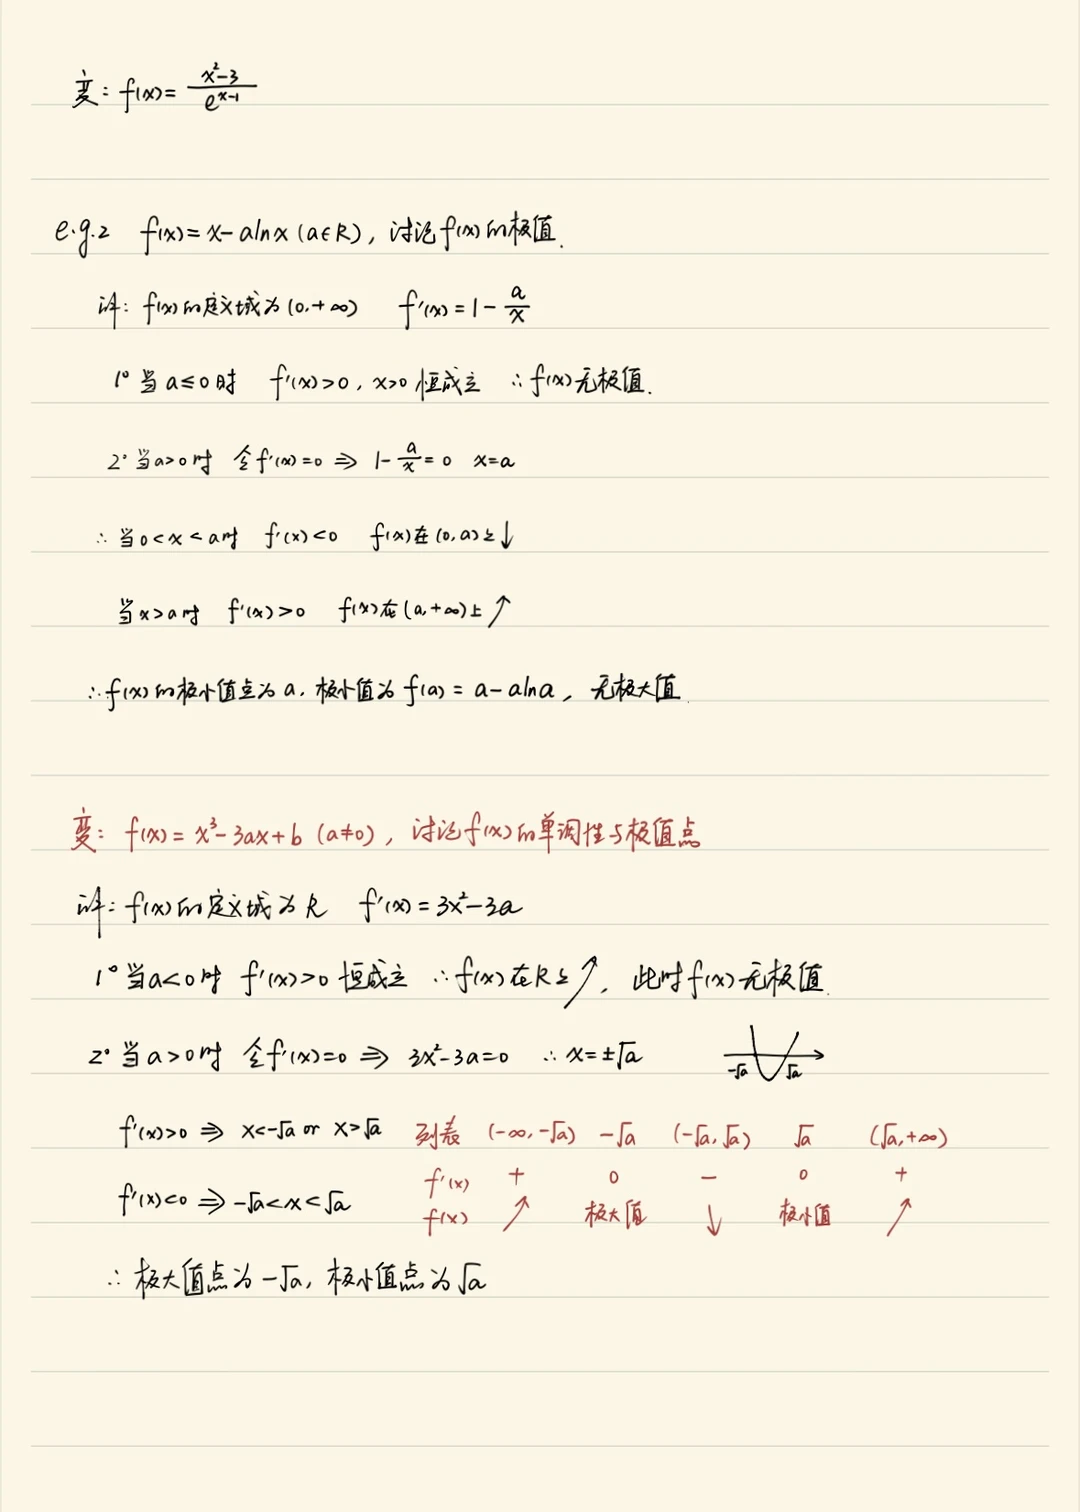 变: f(x)= (x²-3)/(e^(x-1))
e.g.2 f(x)=x-alnx (a∈R), 讨论f(x)的极值.
解: f(x)的定义域为(0,+∞) f'(x)=1-a/x
1° 当a≤0时 f'(x)>0, x>0恒成立 ∴f(x)无极值.
2° 当a>0时 令f'(x)=0 ⇒ 1-a/x=0 x=a
∴当0<x<a时 f'(x)<0 f(x)在(0,a)上↓
当x>a时 f'(x)>0 f(x)在(a,+∞)上↗
∴f(x)的极小值点为a, 极小值为f(a)=a-alna, 无极大值.
变: f(x)=x³-3ax+b (a≠0), 讨论f(x)的单调性与极值点
解: f(x)的定义域为R f'(x)=3x²-3a
1° 当a<0时 f'(x)>0恒成立 ∴f(x)在R上↗, 此时f(x)无极值.
2° 当a>0时 令f'(x)=0 ⇒ 3x²-3a=0 ∴x=±√a
-√a √a
f'(x)>0 ⇒ x<-√a or x>√a 列表 (-∞,-√a) -√a (-√a,√a) √a (√a,+∞)
f'(x) + 0 - 0 +
f'(x)<0 ⇒ -√a<x<√a
f(x) ↗ 极大值 ↓ 极小值 ↗
∴极大值点为-√a, 极小值点为√a